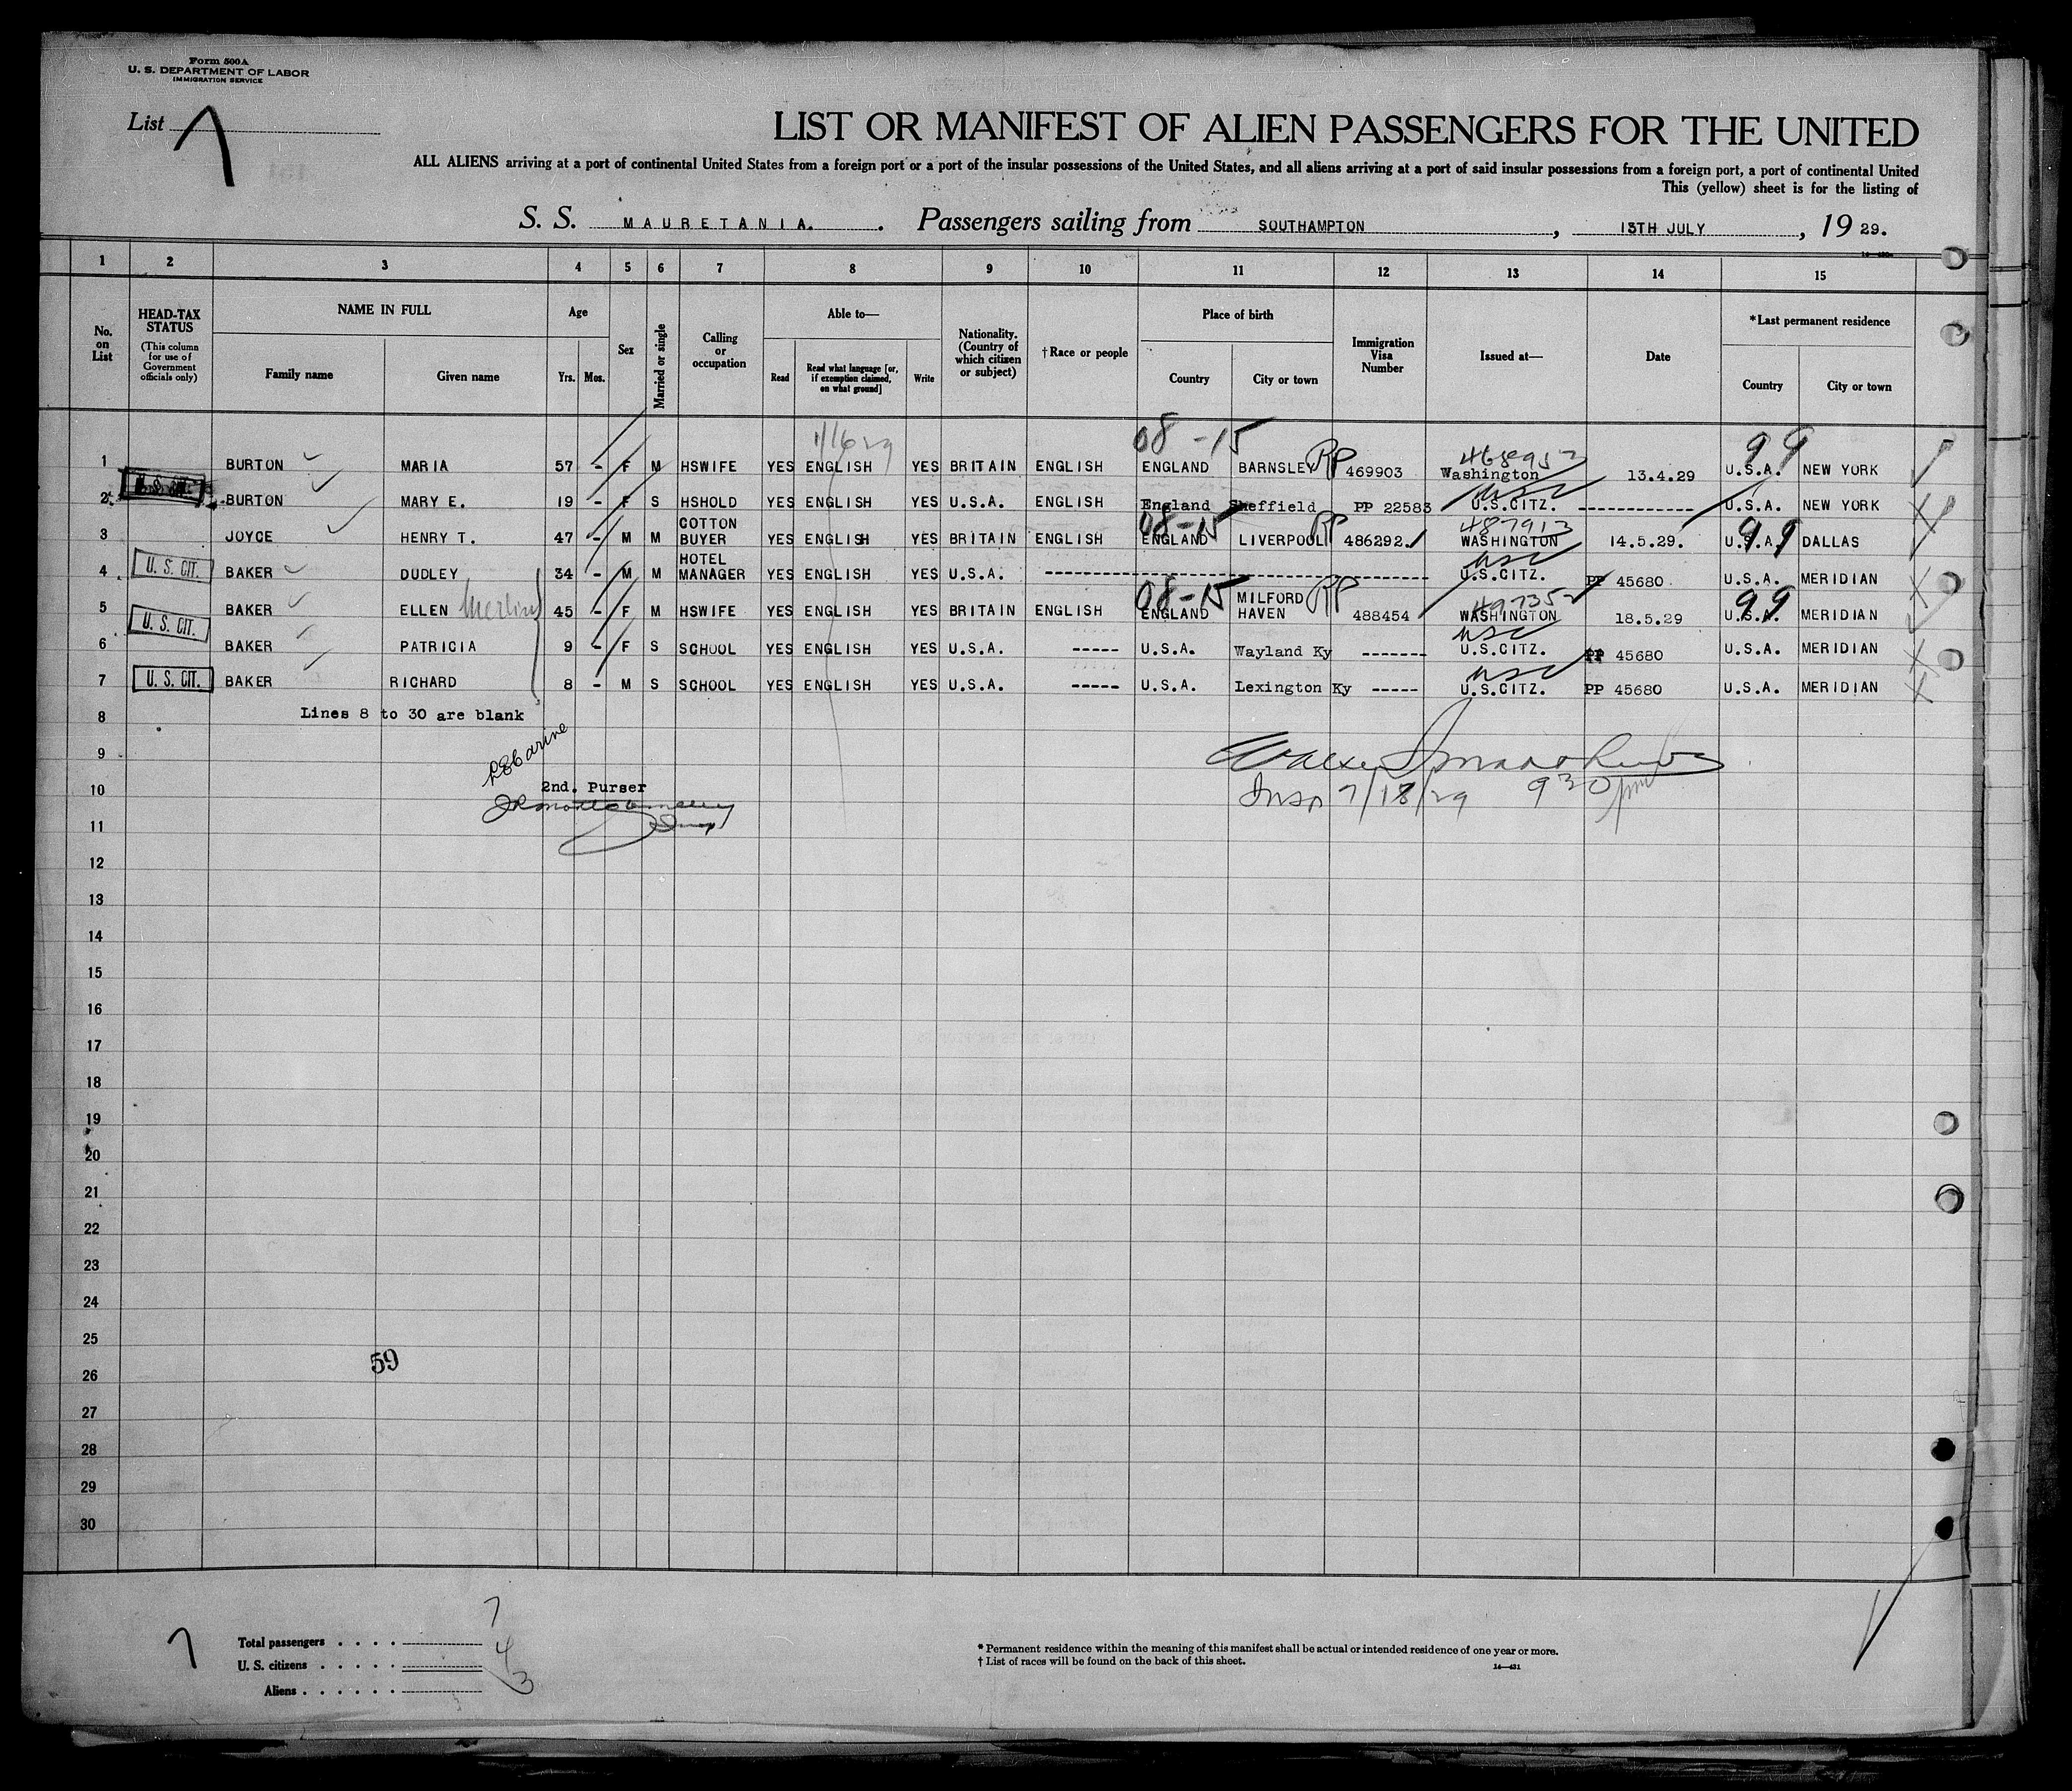 Form 500A
U. S. DEPARTMENT OF LABOR
IMMIGRATION SERVICE
List 7
LIST OR MANIFEST OF ALIEN PASSENGERS FOR THE UNITED
ALL ALIENS arriving at a port of continental United States from a foreign port or a port of the insular possessions of the United States, and all aliens arriving at a port of said insular possessions from a foreign port, a port of continental United
This (yellow) sheet is for the listing of
S. S. MAURETANIA. Passengers sailing from SOUTHAMPTON, 13TH JULY, 1929.
1 2 3 4 5 6 7 8 9 10 11 12 13 14 15
No. on List
HEAD-TAX STATUS (This column for use of Government officials only)
NAME IN FULL Family name Given name
Age Yrs. Mos.
Sex
Married or single
Calling or occupation
Able to— Read Read what language [or, if exemption claimed, on what ground] Write
Nationality. (Country of which citizen or subject)
†Race or people
Place of birth Country City or town
Immigration Visa Number
Issued at—
Date
*Last permanent residence Country City or town
08-15 468952 99
1 BURTON MARIA 57 - F M HSWIFE YES ENGLISH YES BRITAIN ENGLISH ENGLAND BARNSLEY RP 469903 Washington 13.4.29 U.S.A. NEW YORK
2 BURTON MARY E. 19 - F S HSHOLD YES ENGLISH YES U.S.A. ENGLISH England Sheffield PP 22583 USC U.S.CITZ. ------------ U.S.A. NEW YORK
3 JOYCE HENRY T. 47 - M M COTTON BUYER YES ENGLISH YES BRITAIN ENGLISH 08-15 ENGLAND LIVERPOOL RP 486292. 487913 WASHINGTON 14.5.29. 99 U.S.A. DALLAS
4 U. S. CIT. BAKER DUDLEY 34 - M M HOTEL MANAGER YES ENGLISH YES U.S.A. ------------ USC U.S.CITZ. PP 45680 U.S.A. MERIDIAN
5 BAKER ELLEN 45 - F M HSWIFE YES ENGLISH YES BRITAIN ENGLISH 08-15 ENGLAND MILFORD HAVEN RP 488454 WASHINGTON 18.5.29 99 U.S.A. MERIDIAN
6 U. S. CIT. BAKER PATRICIA 9 - F S SCHOOL YES ENGLISH YES U.S.A. ----- U.S.A. Wayland Ky ------- USC U.S.CITZ. PP 45680 U.S.A. MERIDIAN
7 U. S. CIT. BAKER RICHARD 8 - M S SCHOOL YES ENGLISH YES U.S.A. ----- U.S.A. Lexington Ky ----- USC U.S.CITZ. PP 45680 U.S.A. MERIDIAN
8 Lines 8 to 30 are blank
9
10 2nd. Purser
Insp 7/18/29 930 pm
11
12
13
14
15
16
17
18
19
20
21
22
23
24
25
59
26
27
28
29
30
7
Total passengers . . . . 7
U. S. citizens . . . . . 4
Aliens . . . . . . 3
* Permanent residence within the meaning of this manifest shall be actual or intended residence of one year or more.
† List of races will be found on the back of this sheet.
14—431